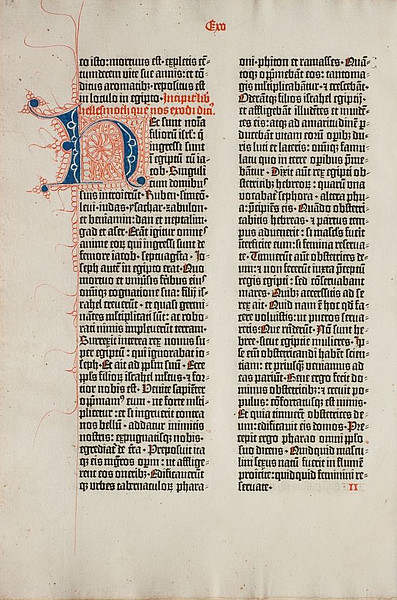 Exo
to isto: mortuus est· expletis cē-
tumdecem vite sue annis: et cō-
ditus aromatibꝰ· repositus est
in loculo in egipto· Incipit lib
hellesmoth que nos exodi dicim9
Hec sunt noīa
filiorū isrl· q̄
ingressi sunt
ī egiptū cū ia-
cob· Singuli
cum domibus
suis introierūt· Ruben· simeō·
leui· iudas· ysachar· zabulon·
et beniamin· dan et neptalim·
gad et aser· Erāt igitur omnes
anime eorū qui ingressi sunt de
femore iacob· septuagīta· Jo-
seph autē in egipto erat· Quo
mortuo et vniuersis fratribꝰ eius
omniqꝫ cognatione sua: filij is-
rahel creuerūt· et quasi germi-
nātes multiplicati sunt: ac robo-
rati nimis impleuerūt terram·
Surrexit interea rex nouus su-
per egiptū: qui ignorabat io-
seph· Et ait ad ppl̄m suū· Ecce
ppl̄s filiorꝫ israhel multus· et for-
cior nobis est· Venite sapiēter
opprimamꝰ eum· ne forte multi-
plicetur: et si ingruerit contra
nos bellū· addatur inimicis
nostris: expugnatisqꝫ nobis·
egrediat᷑ de terra· Preposuit ita-
qꝫ eis mgr̄os operū: ut afflige-
rent eos oneribꝫ· Edificauerūt
qꝫ urbes tabernaculorꝫ phara-
oni· phiton et ramasses· Quā-
toqꝫ opprimebāt eos: tantoma-
gis multiplicabantur· et crescebāt·
Oderātqꝫ filios israhel egiptij·
et affligebāt illudētes et inuidē-
tes eis: atqꝫ ad amaritudinē per-
ducebāt vitam eorū opibꝰ du-
ris luti et lateris: omniqꝫ famu-
latu quo in terre opibus preme-
bantur· Dixit autē rex egipti ob-
stetricibꝫ hebreorꝫ: quarū vna
vocabat᷑ sephora· altera phu-
a: precipiēs eis· Quādo obstetri-
cabitis hebreas· et partus tem-
pus aduenerit: si masculꝰ fuerit
interficite eum: si femina reserua-
te· Timuerūt autē obstetrices de-
um: et non fecerūt iuxta preceptū
regis egipti: sed cōseruabant
mares· Quibꝫ accersitis ad se
rex ait· Quid nam ē hoc quod fa-
cere voluistis: ut pueros seruа-
retis· Que rn̄derūt· Nō sunt he-
bree· sicut egiptie mulieres· Ip-
se enī obstetricandi habēt scien-
tiam: et priusqꝫ veniamus ad
eas pariūt· Bene ergo fecit do-
minus obstetricibꝫ: et creuit po-
pulus: cōfortatusqꝫ est nimis·
Et quia timuerūt obstetrices de-
um: edificauit eis domos· Pre-
cepit ergo pharao omni pplo
suo dicens· Quidquid masculi-
ni sexus natū fuerit in flumen
proicite: quidquid feminini re-
seruate· II